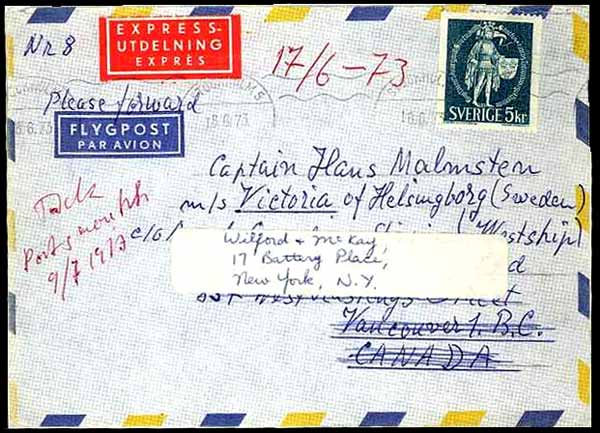 EXPRESS-
UTDELNING
EXPRÈS
Nr 8
17/6-73
SVERIGE 5kr
Please forward
18.6.73
18.6.73
FLYGPOST
PAR AVION
Captain Hans Malmsten
m/s Victoria of Helsingborg (Sweden)
c/o
(Westship)
Wilford & McKay,
17 Battery Place,
New York, N.Y.
Street
Vancouver 1. B.C.
CANADA
Tack
Portsmouth
9/7 1973